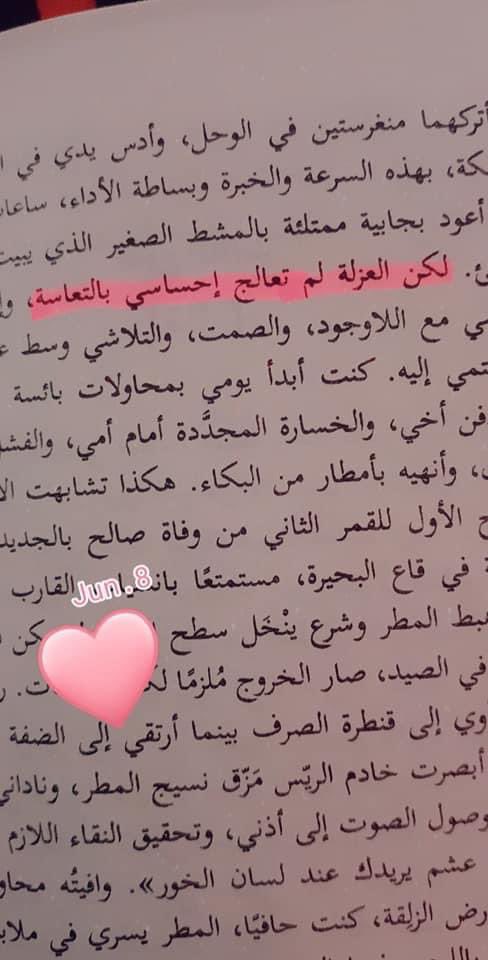 أتركهما منغرستين في الوحل، وأدس يدي في
بهذه السرعة والخبرة وبساطة الأداء، ساعات
أعود بجابية ممتلئة بالمشط الصغير الذي يبيت
لكن العزلة لم تعالج إحساسي بالتعاسة،
مع اللاوجود، والصمت، والتلاشي وسط
إليه. كنت أبدأ يومي بمحاولات بائسة
أخي، والخسارة المجدَّدة أمام أمي، والفشل
وأنهيه بأمطار من البكاء. هكذا تشابهت
الأول للقمر الثاني من وفاة صالح بالجديد
في قاع البحيرة، مستمتعًا القارب
المطر وشرع ينْخَل سطح
في الصيد، صار الخروج مُلزمًا
إلى قنطرة الصرف بينما أرتقي إلى الضفة
أبصرت خادم الريّس مَزّق نسيج المطر، وناداني
وصول الصوت إلى أذني، وتحقيق النقاء اللازم
عشم يريدك عند لسان الخور». وافيتُه
الزلِقة، كنت حافيًا، المطر يسري في
Jun.8